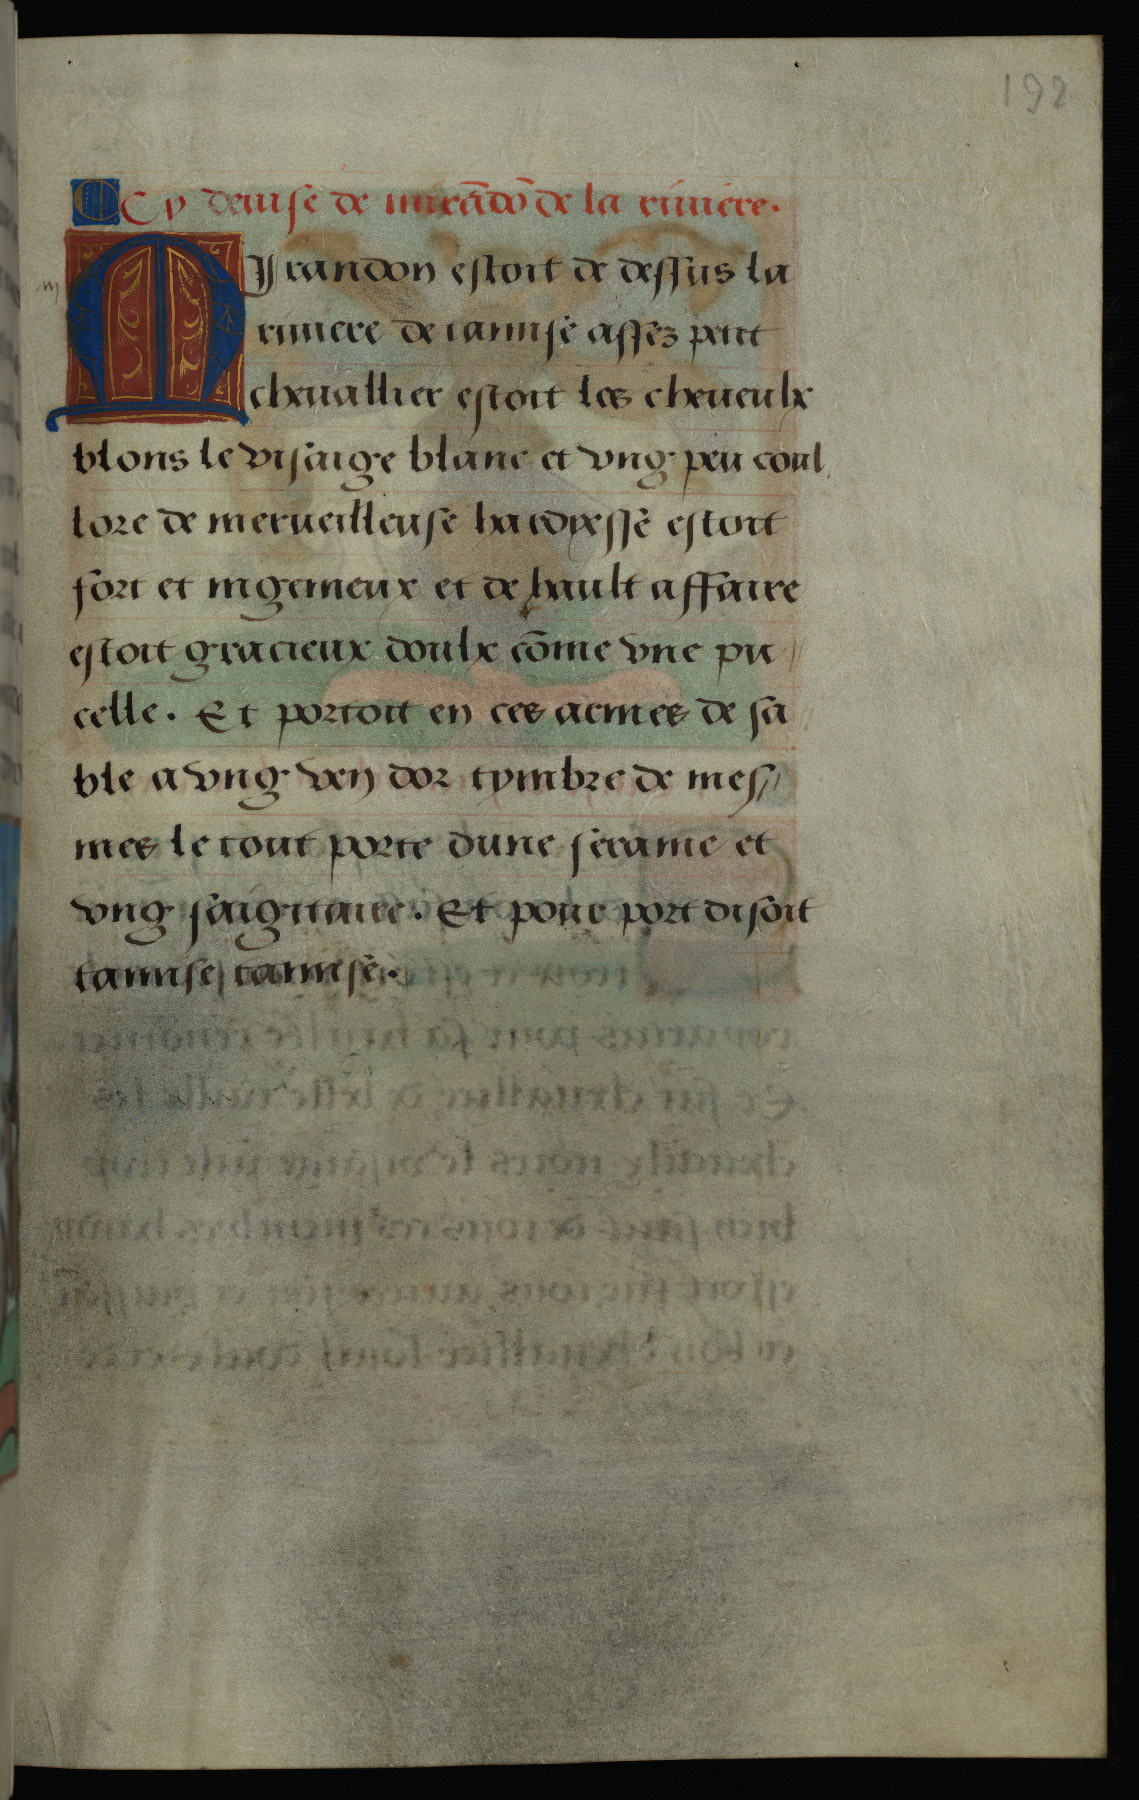 192
Cy deuise de mirādō de la riuiere.
MIrandon estoit de dessus la
riuiere de tamise assez petit
cheuallier estoit les cheueulx
blons le visaige blanc et vng peu coul
lore de merueilleuse hardiesse estoit
fort et ingenieux et de hault affaire
estoit gracieux doulx cōme vne pu
celle. Et portoit en ces armes de sa
ble a vng ven dor tymbre de mes//
mes le tout porte dune seraine et
vng saigitaire. Et pour port disoit
tamise tamise.